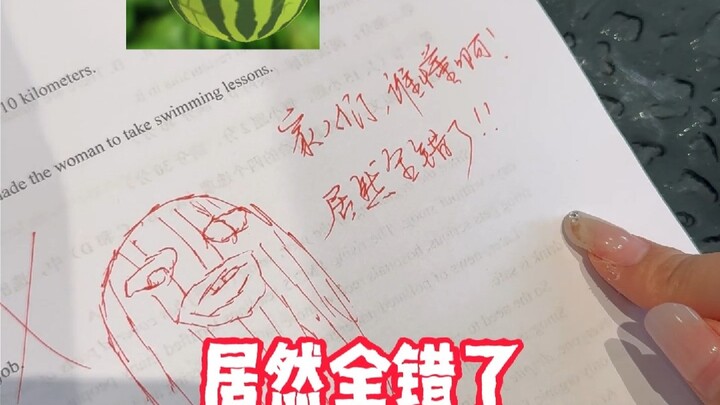 10 kilometers.
ade the woman to take swimming lessons.
家人们,谁懂啊!
居然全错了!!
job.
居然全错了